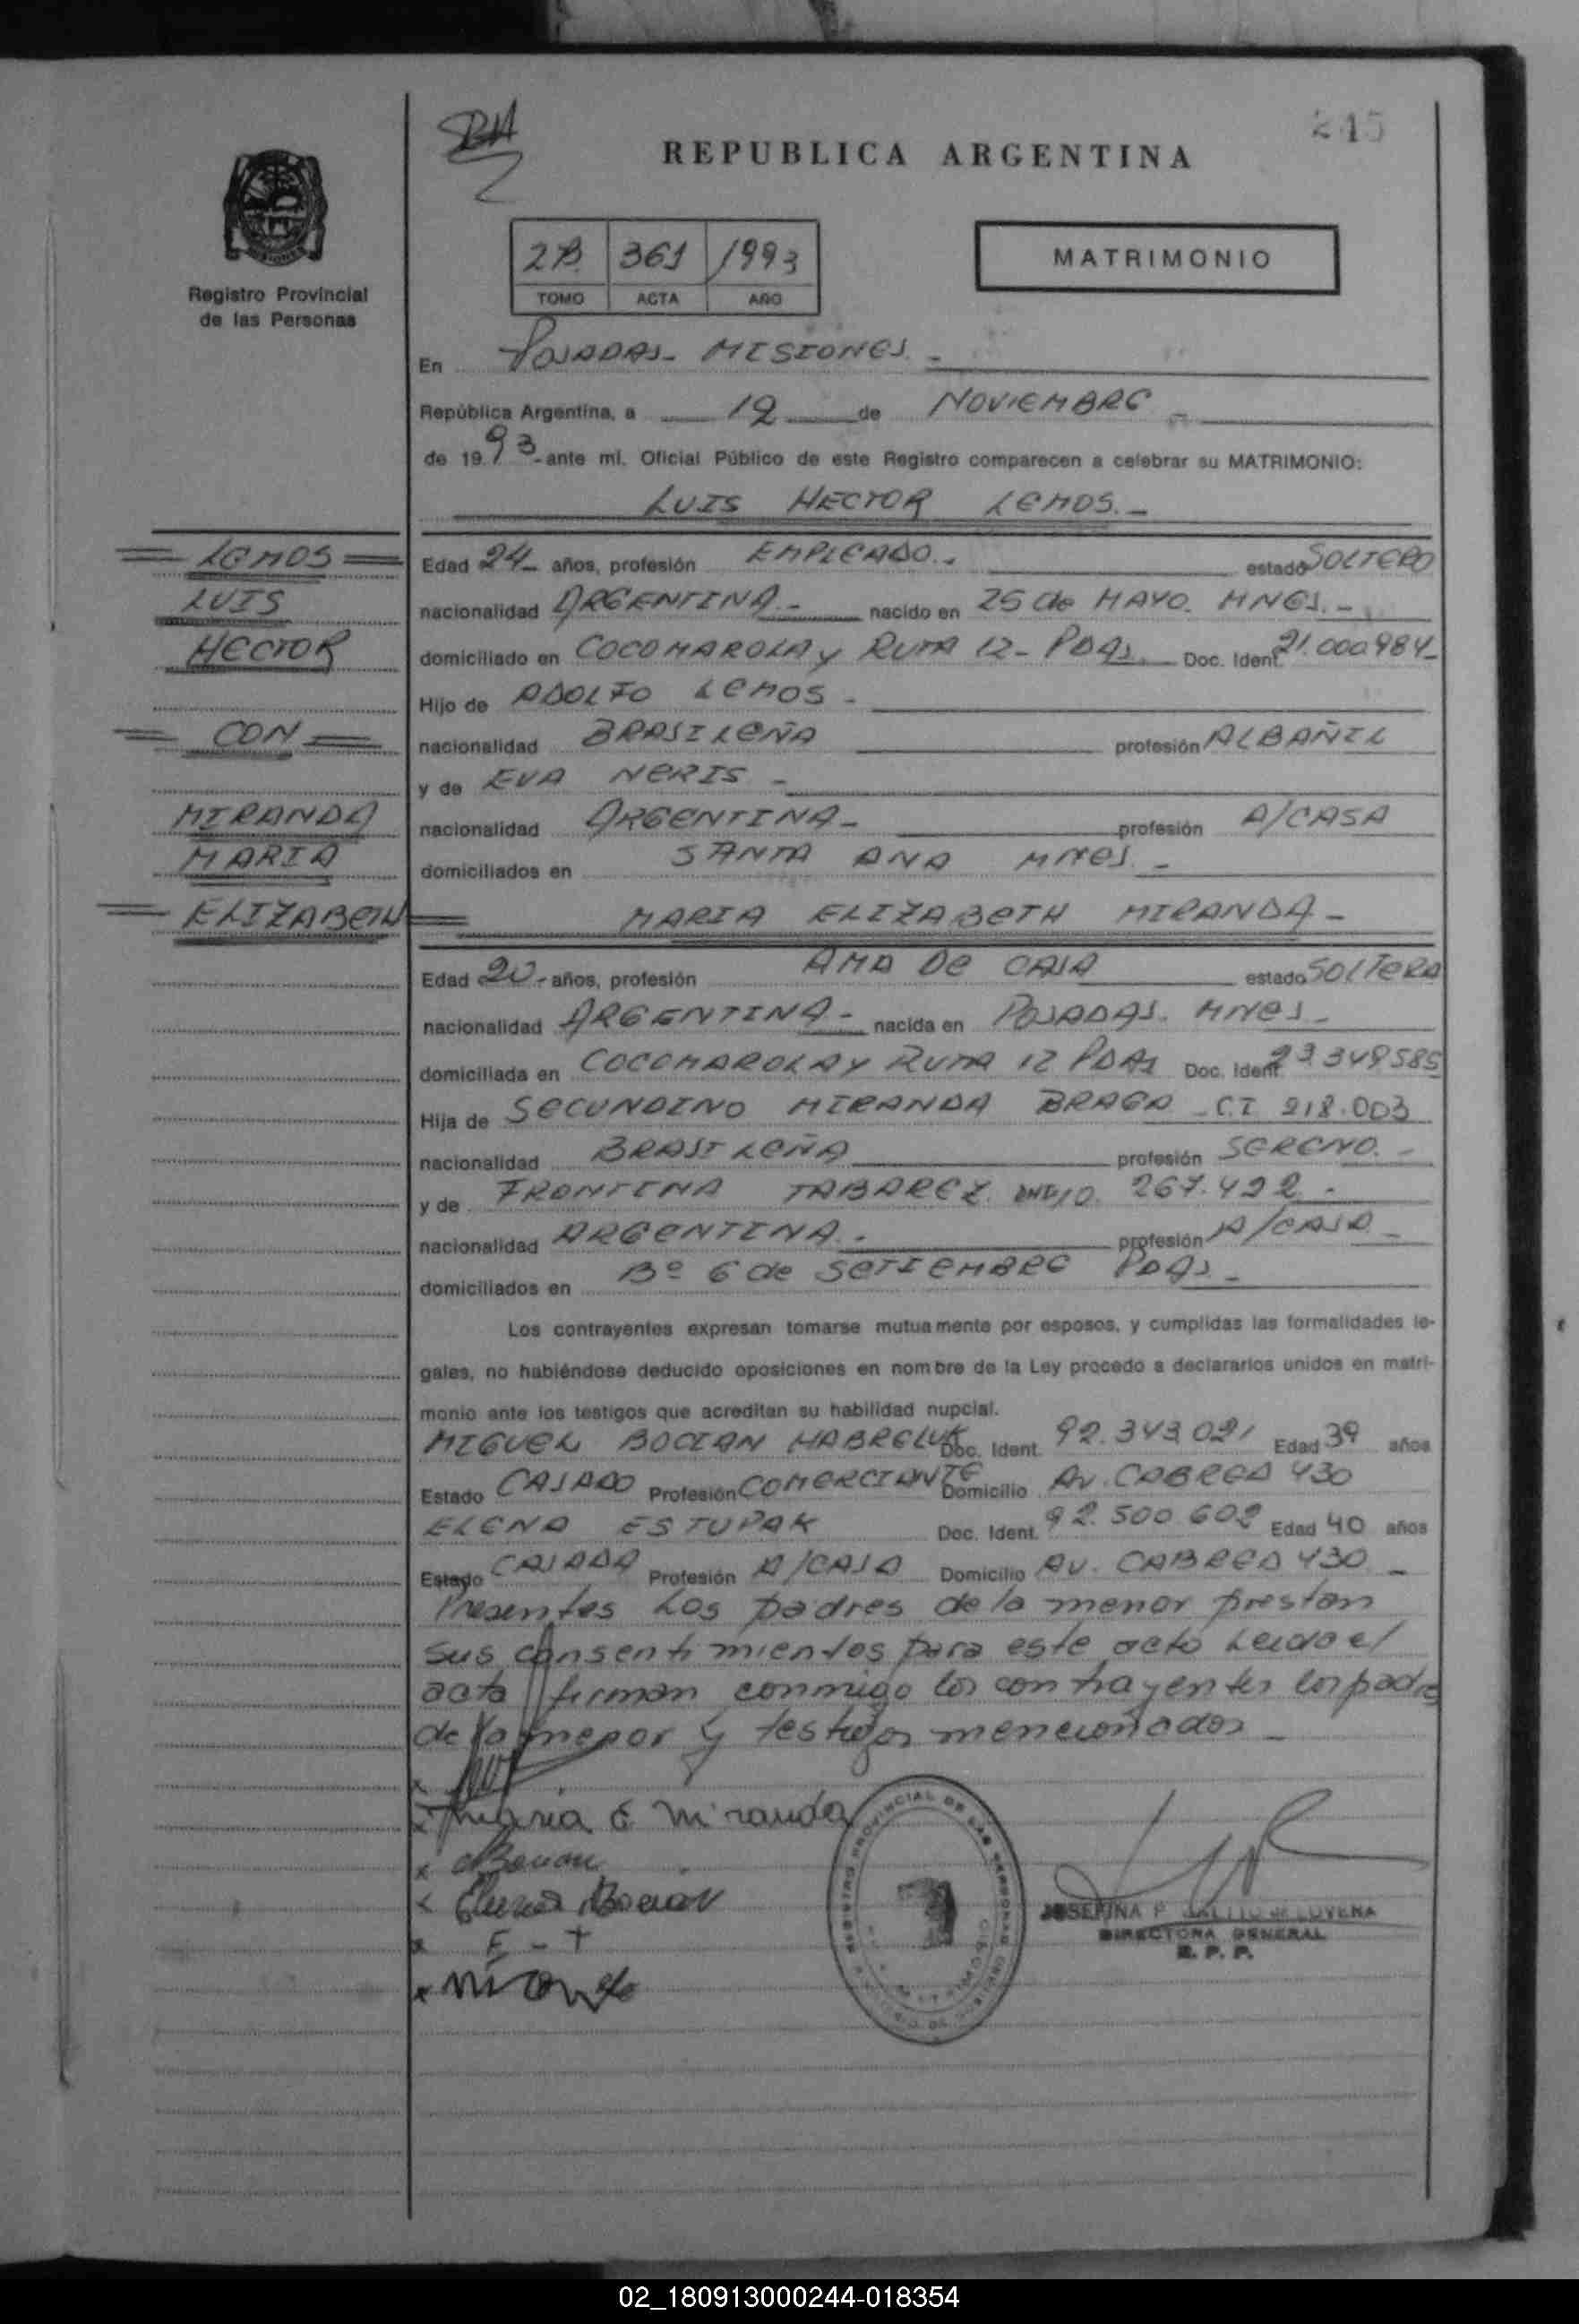 245
REPUBLICA ARGENTINA
2B. 361 1993
TOMO ACTA AÑO
MATRIMONIO
Registro Provincial
de las Personas
En POSADAS - MISIONES.-
República Argentina, a 12 de NOVIEMBRE -
de 1993 -ante mí. Oficial Público de este Registro comparecen a celebrar su MATRIMONIO:
LUIS HECTOR LEMOS.-
LEMOS
LUIS
HECTOR
CON
MIRANDA
MARIA
ELIZABETH
Edad 24- años, profesión EMPLEADO.- estado SOLTERO
nacionalidad ARGENTINA.- nacido en 25 de MAYO. MNES.-
domiciliado en COCOMAROLA y RUTA 12- PDAS. Doc. Ident. 21.000.984-
Hijo de ADOLFO LEMOS -
nacionalidad BRASILEÑA profesión ALBAÑIL
y de EVA NERIS -
nacionalidad ARGENTINA- profesión A/CASA
domiciliados en SANTA ANA MNES.-
MARIA ELIZABETH MIRANDA-
Edad 20- años, profesión AMA DE CASA estado SOLTERA
nacionalidad ARGENTINA- nacida en POSADAS. MNES-
domiciliada en COCOMAROLA Y RUTA 12 PDAS Doc. Ident. 23.349585
Hija de SECUNDINO MIRANDA BRAGA - C.I 218.003
nacionalidad BRASILEÑA profesión SERENO.-
y de FRONTINA TABAREZ. 267.492.-
nacionalidad ARGENTINA.- profesión A/CASA-
domiciliados en Bº 6 de SETIEMBRE PDAS-
Los contrayentes expresan tomarse mutuamente por esposos, y cumplidas las formalidades le-
gales, no habiéndose deducido oposiciones en nombre de la Ley procedo a declararlos unidos en matri-
monio ante los testigos que acreditan su habilidad nupcial.
MIGUEL BOCIAN HABRELUK Doc. Ident. 92.343.021 Edad 39 años
Estado CASADO Profesión COMERCIANTE Domicilio AV. CABRED 430
ELENA ESTUPAK Doc. Ident. 92.500.602 Edad 40 años
Estado CASADA Profesión A/CASA Domicilio AV. CABRED 430 -
Presentes Los padres de la menor prestan
sus consentimientos para este acto Leida el
acta firman conmigo los contrayentes los padres
de la menor y testigos mencionados -
x
x Maria E Miranda
x Bocian
x Elena Bocian
x E - T
x
REGISTRO PROVINCIAL DE LAS PERSONAS
JOSEFINA P. de LOVERA
DIRECTORA GENERAL
R. P. P.
02_180913000244-018354